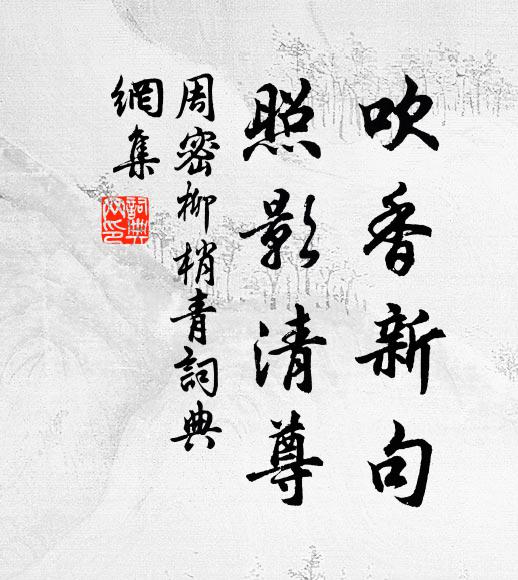 吹香新句
照影清尊
周密柳梢青詞典
網集
詞典